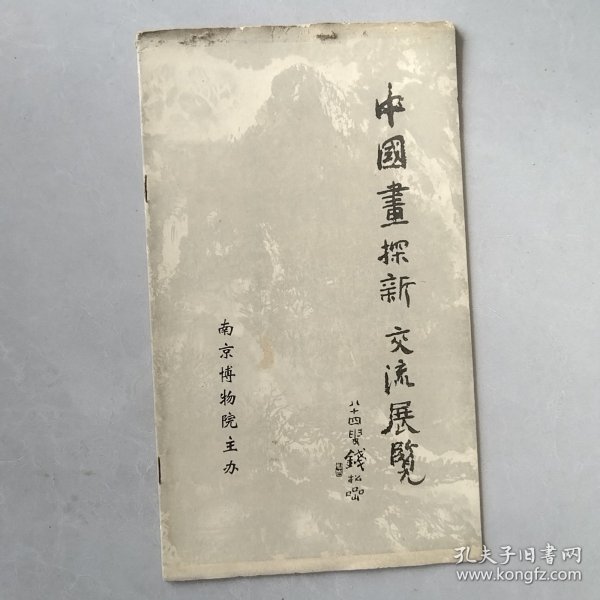 中國畫探新交流展覧
八十四叟錢松喦
南京博物院主办
孔夫子旧書网
www.kongfz.com